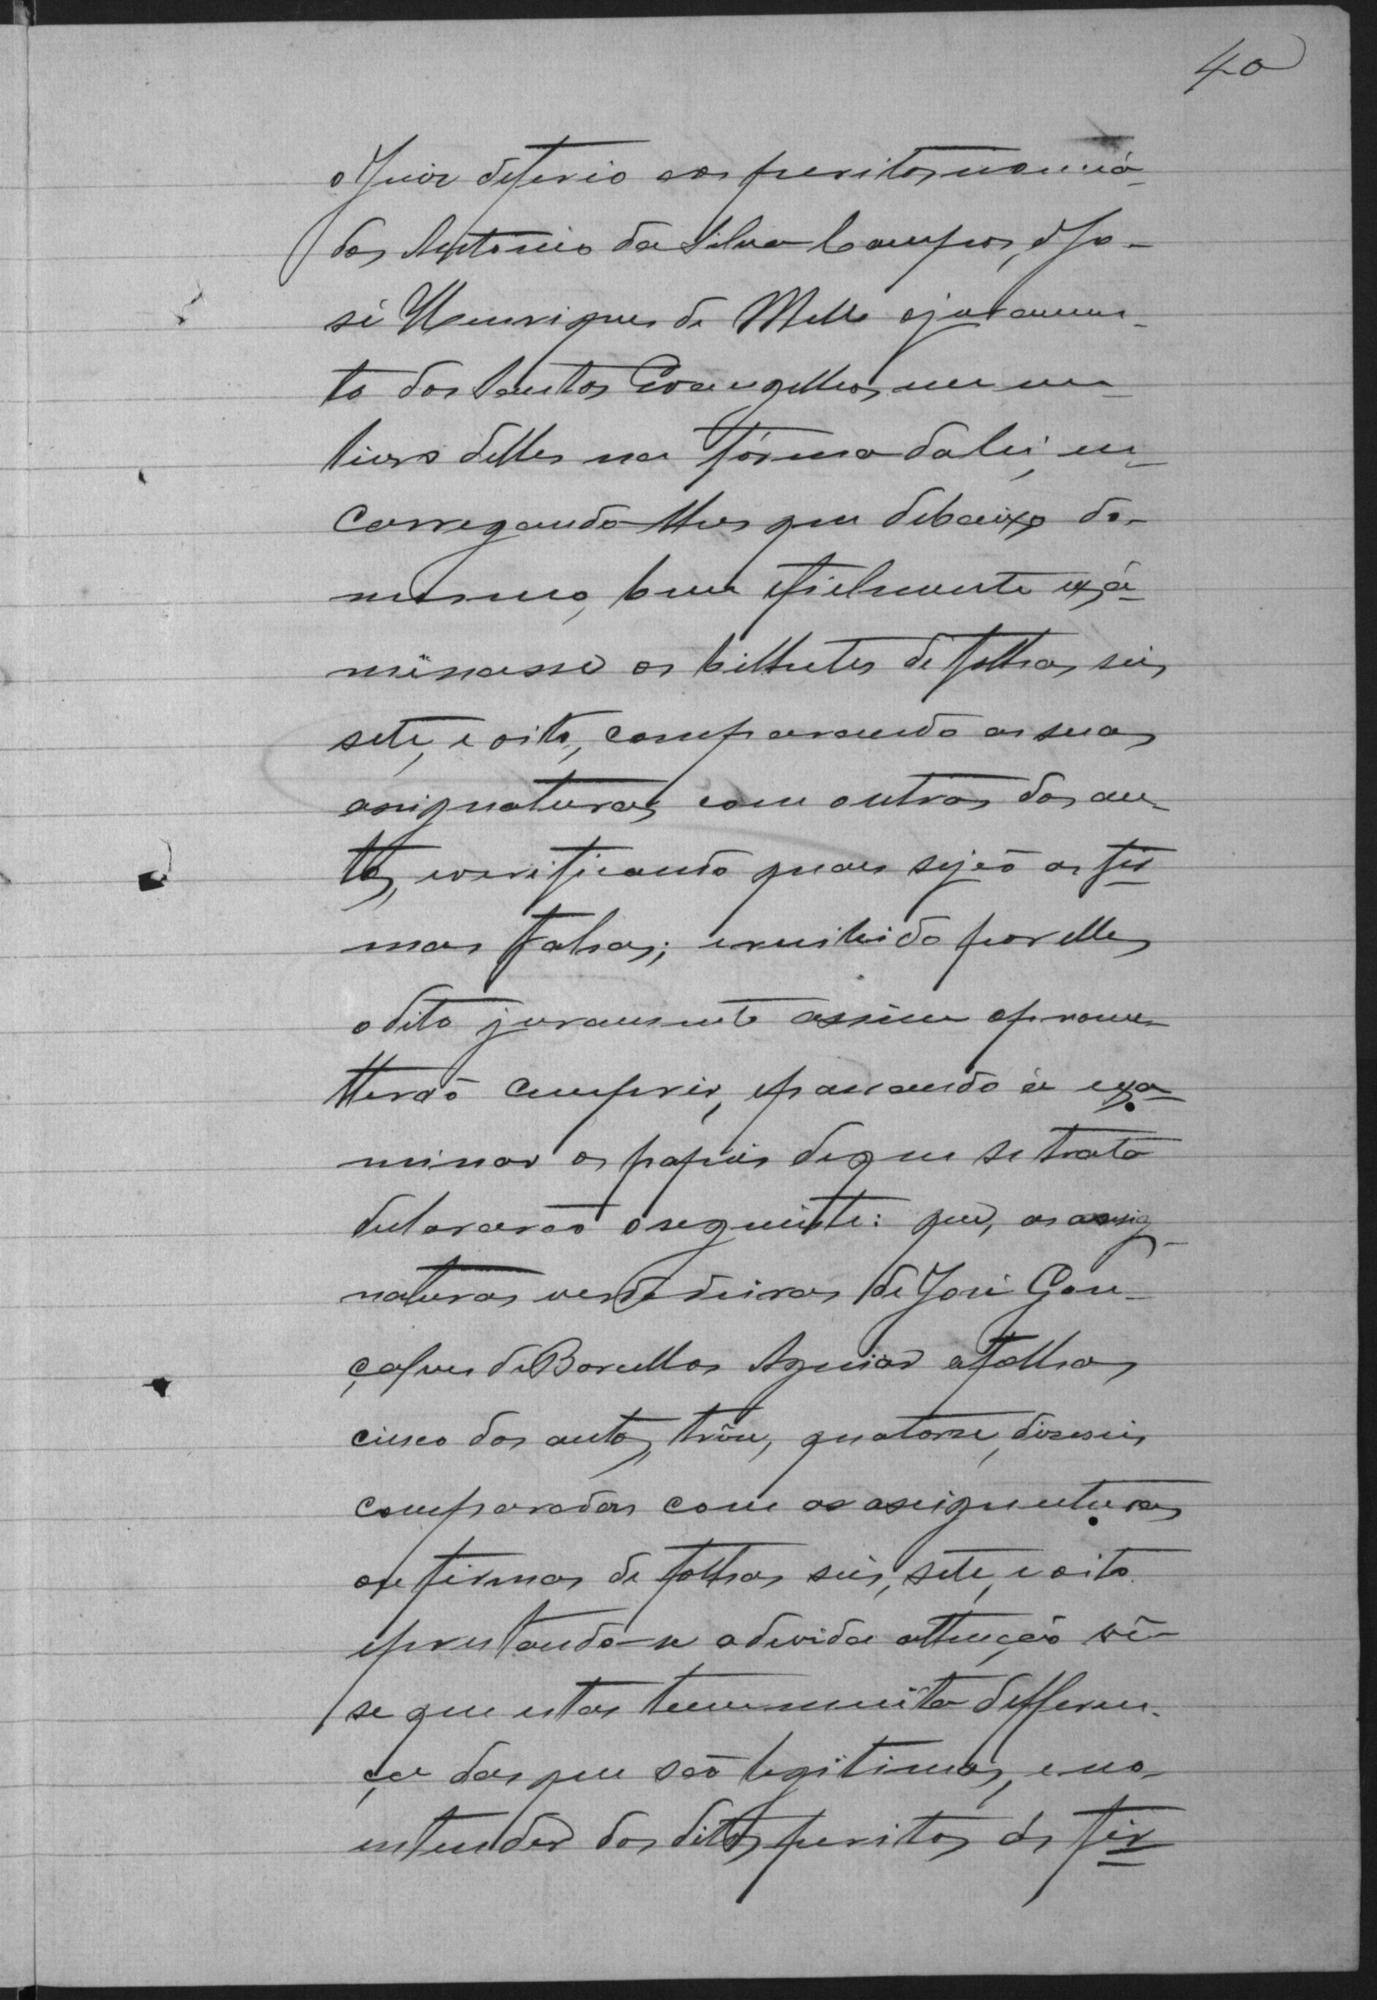 40
o Juiz deferio aos peritos nomiá-
dos Antonio da Silva Campos, e Jo-
sé Henriques de Mello ojuramen-
to dos Santos Evangelhos em um
livro delles na fórma da lei, en-
carregando-lhes que debaixo do-
mesmo, bem efielmente exá-
minasse os bilhetes de folhas seis,
sete, e oito, comparando as suas
assignaturas com outras dos au-
tos, everificando quaes sejão as fir-
mas falsas; erecibido por elles
odito juramento assim oprome-
tterão cumprir, epassando á exa-
minar os papeis deque se trata
declararão oseguinte: que, as assig-
naturas verdadeiras de José Gon-
çalves de Barcellos Aguiar afolhas
cinco dos autos, trêse, quatorze, dizeseis
comparadas com as assignaturas
ou firmas de folhas seis, sete, e oito
eprestando-se adevida attenção vê-
se que estas tem muita differen-
ça das que são legitimas, e no
entender dos ditos peritos as fir